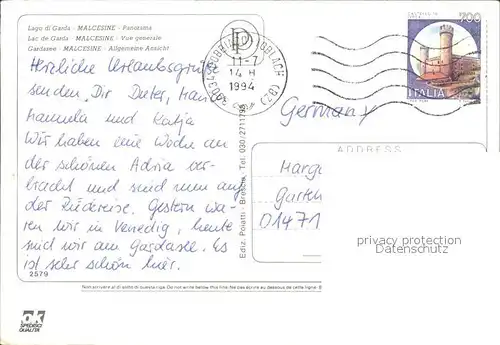 Lago di Garda - MALCESINE - Panorama
Lac de Garda - MALCESINE - Vue generale
Gardasee - MALCESINE - Allgemeine Ansicht
Herzliche Urlaubsgrüße
senden Dir Dieter,
Manuela und Katja
Wir haben eine Woche an
der schönen Adria ver-
bracht und sind nun auf
der Rückreise. Gestern wa-
ren wir in Venedig, heute
sind wir am Gardasee. Es
ist sehr schön hier.
2579
OK
SPEDISCI
QUALITÀ
Ediz. Poiatti - Brescia. Tel. 030/2711795
11-7
14 H
1994
700
ITALIA
Germany
ADDRESS
Marga
Garten
01471
privacy protection
Datenschutz
Non scrivere al di sotto di questa riga. Do not write below this line. Ne pas écrire au dessous de cette ligne